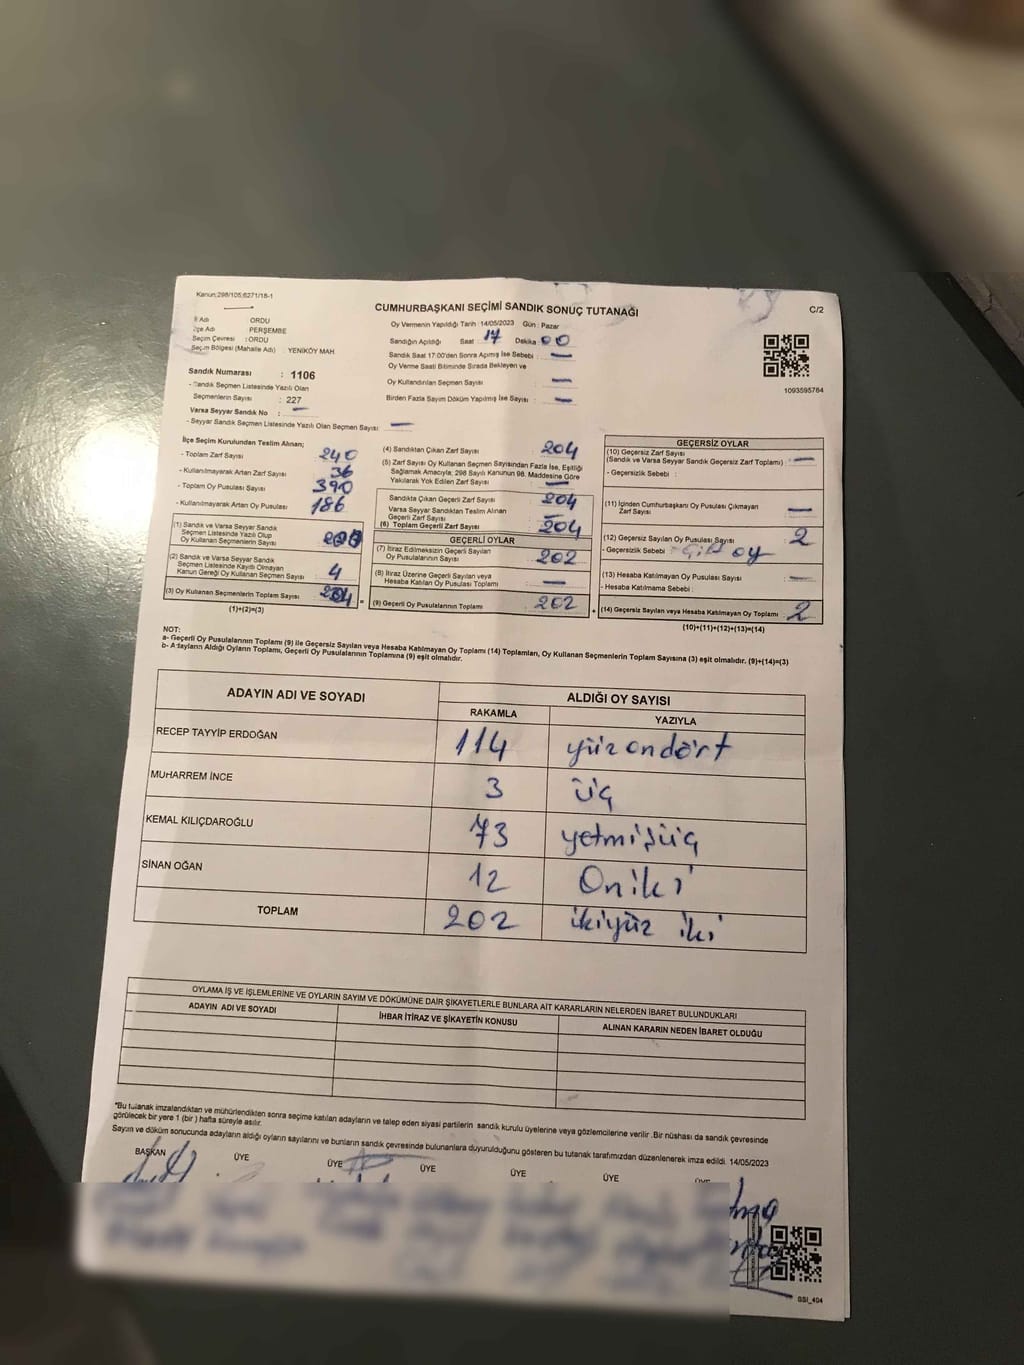 Kanun;298/105;6271/18-1
CUMHURBAŞKANI SEÇİMİ SANDIK SONUÇ TUTANAĞI
C/2
İl Adı ORDU
İlçe Adı PERŞEMBE
Seçim Çevresi : ORDU
Seçim Bölgesi (Mahalle Adı) : YENİKÖY MAH
Oy Vermenin Yapıldığı Tarih :14/05/2023 Gün : Pazar
Sandığın Açıldığı Saat : 17 Dakika 00
Sandık Saat 17.00'den Sonra Açımış İse Sebebi : —
Oy Verme Saati Bitiminde Sırada Bekleyen ve
Oy Kullandırılan Seçmen Sayısı : —
Birden Fazla Sayım Döküm Yapılmış İse Sayısı : —
1093595764
Sandık Numarası : 1106
- Sandık Seçmen Listesinde Yazılı Olan
Seçmenlerin Sayısı : 227
Varsa Seyyar Sandık No : —
- Seyyar Sandık Seçmen Listesinde Yazılı Olan Seçmen Sayısı : —
İlçe Seçim Kurulundan Teslim Alınan;
- Toplam Zarf Sayısı 240
- Kullanılmayarak Artan Zarf Sayısı 36
- Toplam Oy Pusulası Sayısı 390
- Kullanılmayarak Artan Oy Pusulası 186
(1) Sandık ve Varsa Seyyar Sandık
Seçmen Listesinde Yazılı Olup
Oy Kullanan Seçmenlerin Sayısı
(2) Sandık ve Varsa Seyyar Sandık
Seçmen Listesinde Kayıtlı Olmayan
Kanun Gereği Oy Kullanan Seçmen Sayısı 4
(3) Oy Kullanan Seçmenlerin Toplam Sayısı 204 =
(1)+(2)=(3)
(4) Sandıktan Çıkan Zarf Sayısı 204
(5) Zarf Sayısı Oy Kullanan Seçmen Sayısından Fazla İse, Eşitliği
Sağlamak Amacıyla, 298 Sayılı Kanunun 98. Maddesine Göre
Yakılarak Yok Edilen Zarf Sayısı : —
Sandıkta Çıkan Geçerli Zarf Sayısı 204
Varsa Seyyar Sandıktan Teslim Alınan
Geçerli Zarf Sayısı —
(6) Toplam Geçerli Zarf Sayısı 204
GEÇERLİ OYLAR
(7) İtiraz Edilmeksizin Geçerli Sayılan
Oy Pusulalarının Sayısı 202
(8) İtiraz Üzerine Geçerli Sayılan veya
Hesaba Katılan Oy Pusulası Toplamı —
(9) Geçerli Oy Pusulalarının Toplamı 202 +
GEÇERSİZ OYLAR
(10) Geçersiz Zarf Sayısı
(Sandık ve Varsa Seyyar Sandık Geçersiz Zarf Toplamı) : —
- Geçersizlik Sebebi :
(11) İçinden Cumhurbaşkanı Oy Pusulası Çıkmayan
Zarf Sayısı —
(12) Geçersiz Sayılan Oy Pusulası Sayısı 2
- Geçersizlik Sebebi : Çift oy
(13) Hesaba Katılmayan Oy Pusulası Sayısı : —
- Hesaba Katılmama Sebebi :
(14) Geçersiz Sayılan veya Hesaba Katılmayan Oy Toplamı : 2
(10)+(11)+(12)+(13)=(14)
NOT:
a- Geçerli Oy Pusulalarının Toplamı (9) ile Geçersiz Sayılan veya Hesaba Katılmayan Oy Toplamı (14) Toplamları, Oy Kullanan Seçmenlerin Toplam Sayısına (3) eşit olmalıdır. (9)+(14)=(3)
b- Adayların Aldığı Oyların Toplamı, Geçerli Oy Pusulalarının Toplamına (9) eşit olmalıdır.
ADAYIN ADI VE SOYADI ALDIĞI OY SAYISI
RAKAMLA YAZIYLA
RECEP TAYYİP ERDOĞAN 114 yüzondört
MUHARREM İNCE 3 üç
KEMAL KILIÇDAROĞLU 73 yetmişüç
SİNAN OĞAN 12 Oniki
TOPLAM 202 ikiyüz iki
OYLAMA İŞ VE İŞLEMLERİNE VE OYLARIN SAYIM VE DÖKÜMÜNE DAİR ŞİKAYETLERLE BUNLARA AİT KARARLARIN NELERDEN İBARET BULUNDUKLARI
ADAYIN ADI VE SOYADI İHBAR İTİRAZ VE ŞİKAYETİN KONUSU ALINAN KARARIN NEDEN İBARET OLDUĞU
*Bu tutanak imzalandıktan ve mühürlendikten sonra seçime katılan adayların ve talep eden siyasi partilerin sandık kurulu üyelerine veya gözlemcilerine verilir .Bir nüshası da sandık çevresinde
görülecek bir yere 1 (bir ) hafta süreyle asılır.
Sayım ve döküm sonucunda adayların aldığı oyların sayılarını ve bunların sandık çevresinde bulunanlara duyurulduğunu gösteren bu tutanak tarafımızdan düzenlenerek imza edildi. 14/05/2023
BAŞKAN ÜYE ÜYE ÜYE ÜYE ÜYE ÜYE
GSI_404